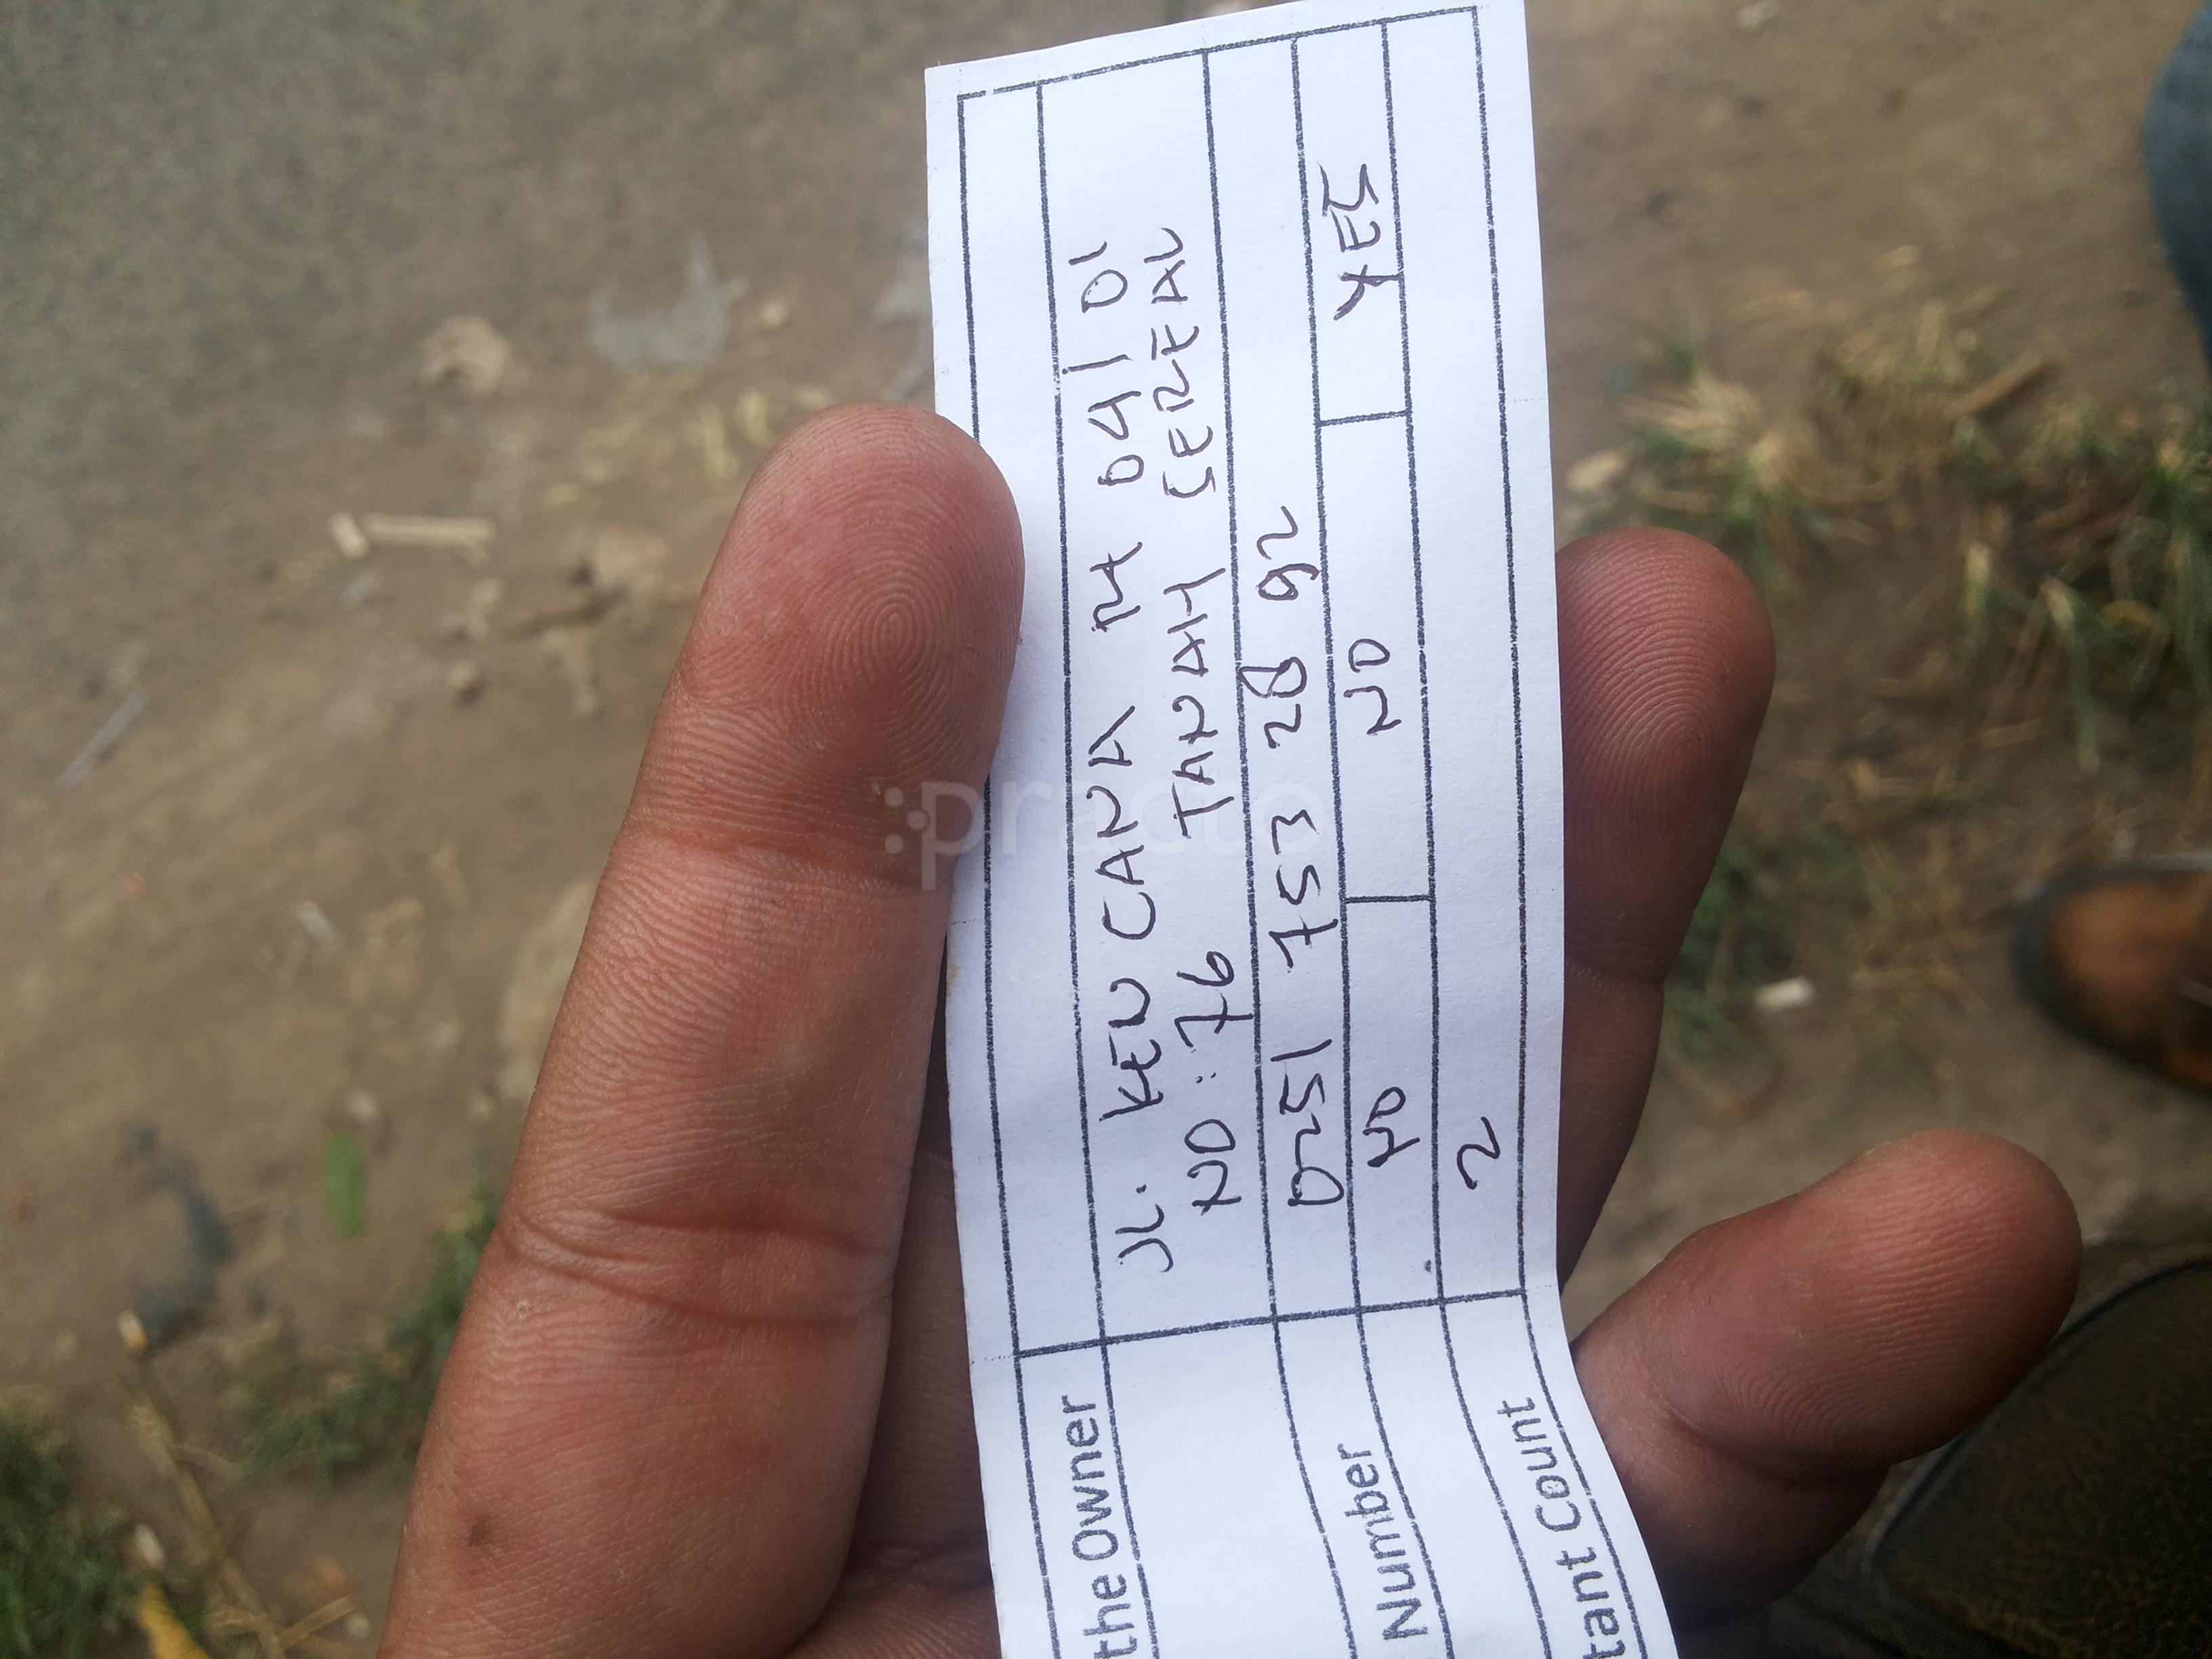 the Owner
JL. KEN CANA 24 04/01
NO: 76 TANAH SEREAL
Number
0251 753 28 92
NO NO YES
tant Count 2